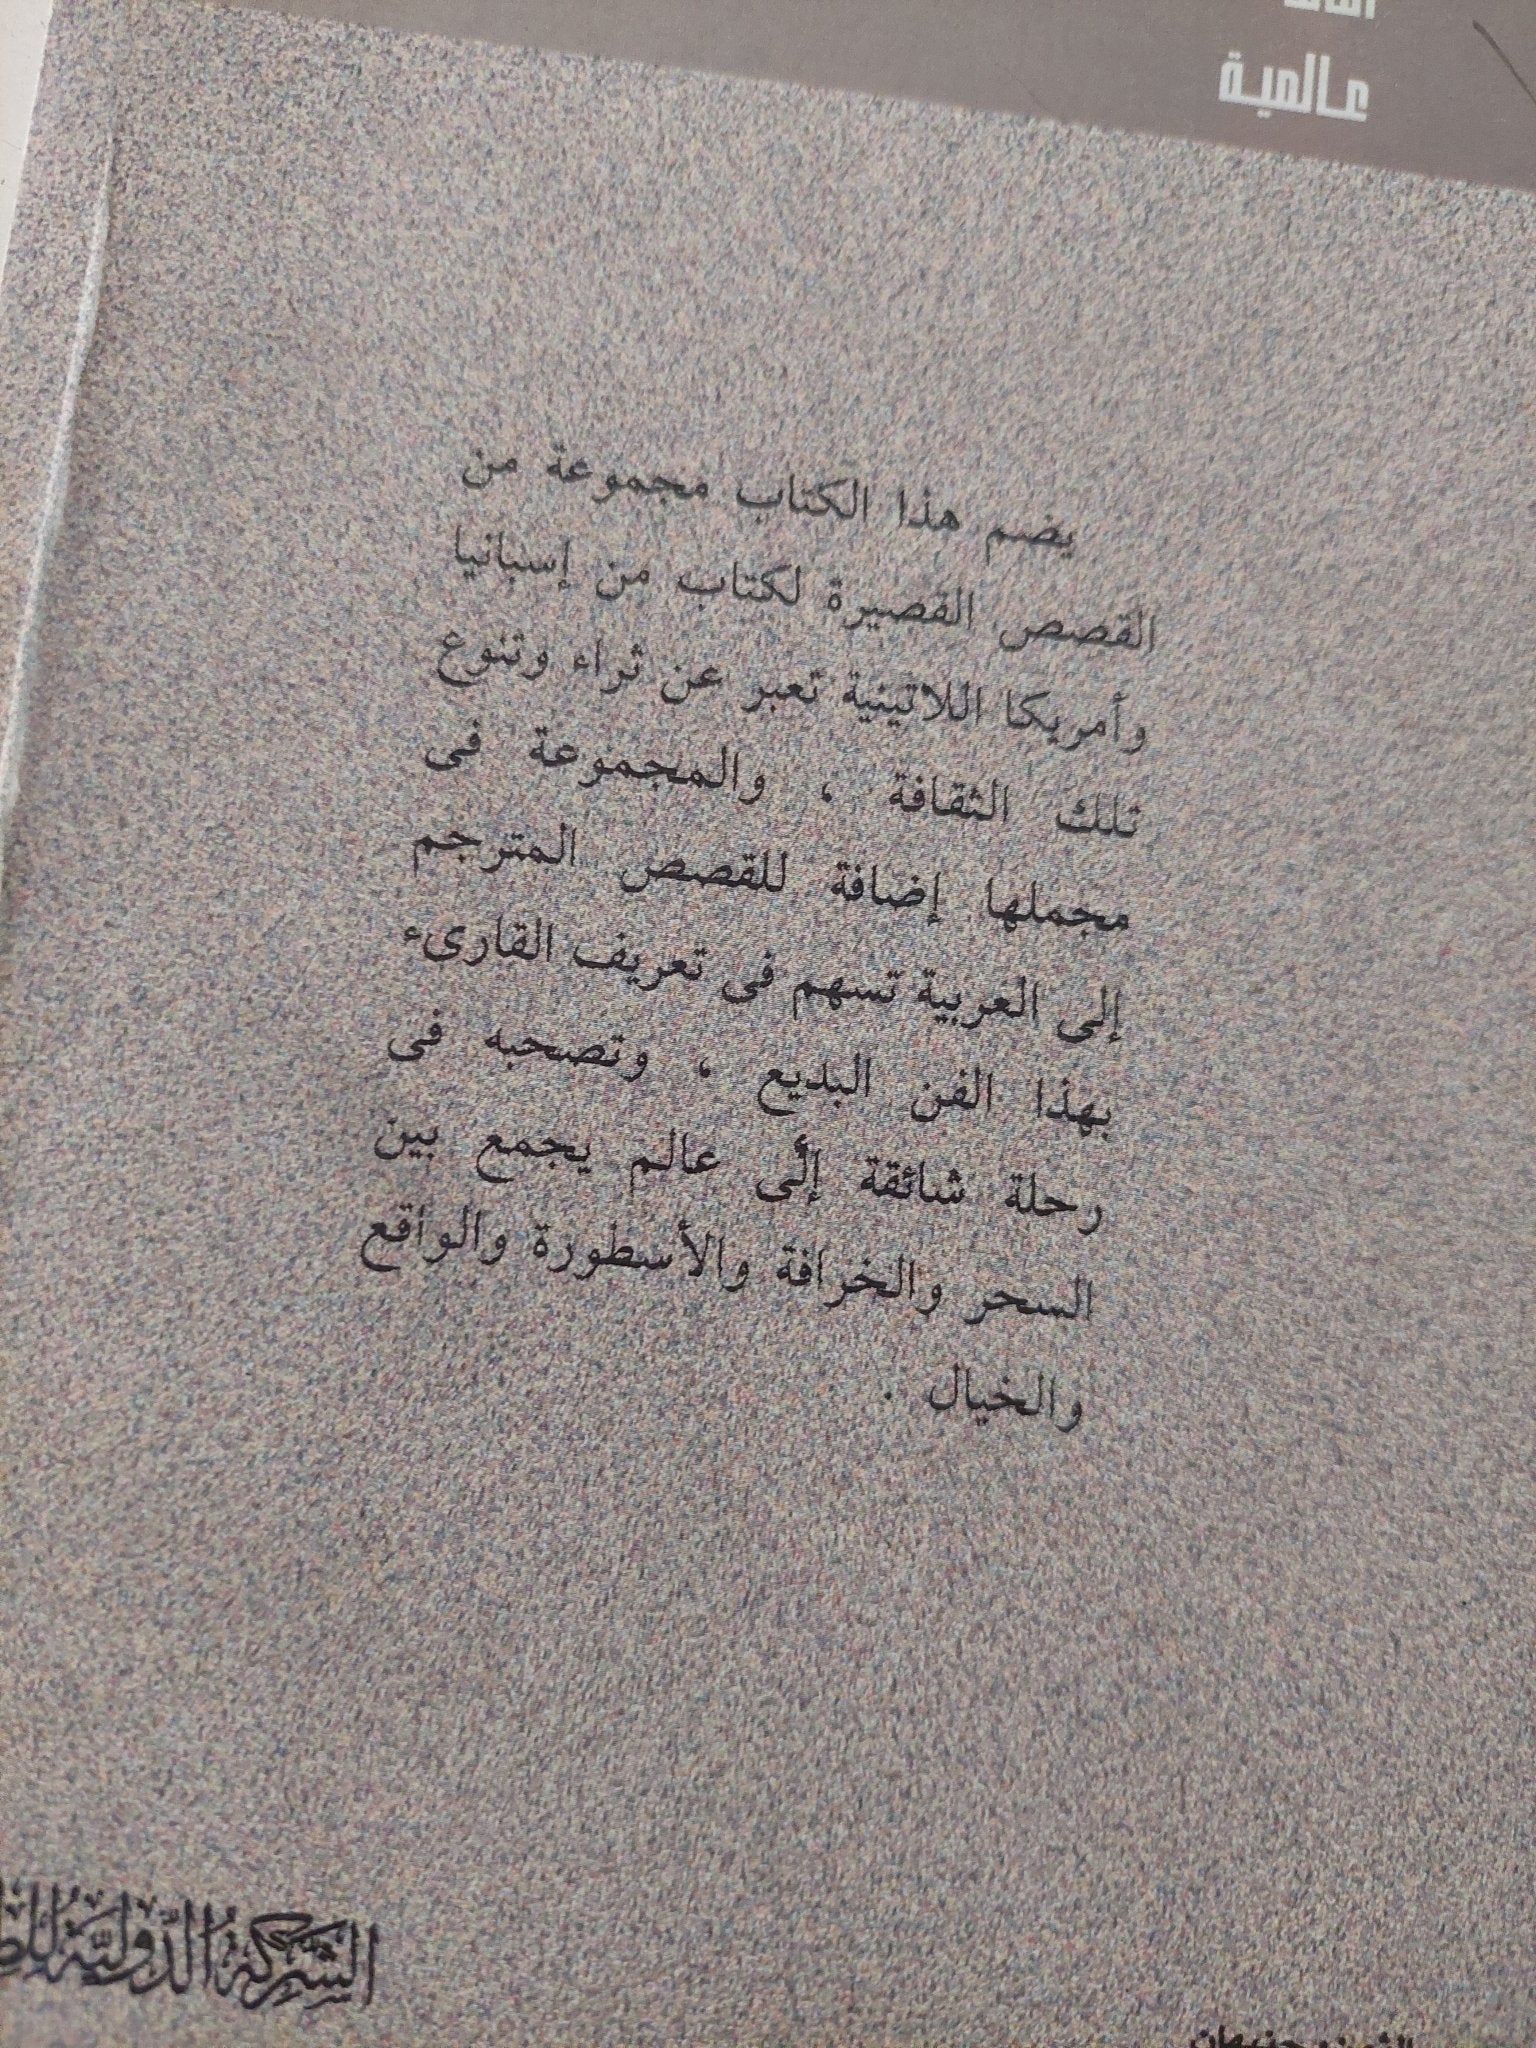 عالمية
يضم هذا الكتاب مجموعة من
القصص القصيرة لكتاب من إسبانيا
وأمريكا اللاتينية تعبر عن ثراء وتنوع
تلك الثقافة ، والمجموعة فى
مجملها إضافة للقصص المترجم
إلى العربية تسهم فى تعريف القارىء
بهذا الفن البديع ، وتصحبه فى
رحلة شائقة إلى عالم يجمع بين
السحر والخرافة والأسطورة والواقع
والخيال .
الشركة الدولية